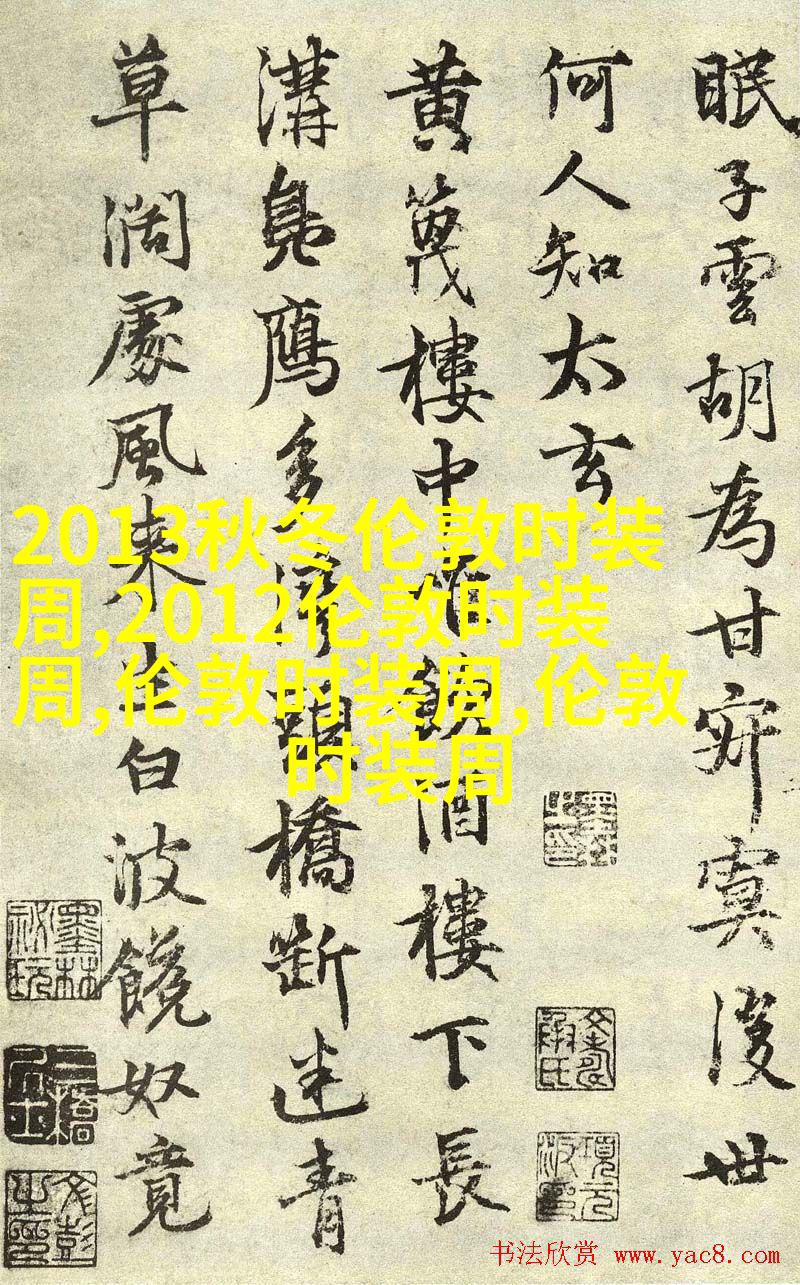 眠子雲胡為甘寂寞後世
何人知太玄
黄篾樓中
酒樓下長
溝凫鷹多
橋斷迷青
草闊處風來生白波饒奴竟
2013秋冬伦敦时装
周,2012伦敦时装
周,伦敦时装周,伦敦
时装周
墨林祕玩
文彭之印
书法欣赏 www.yac8.com